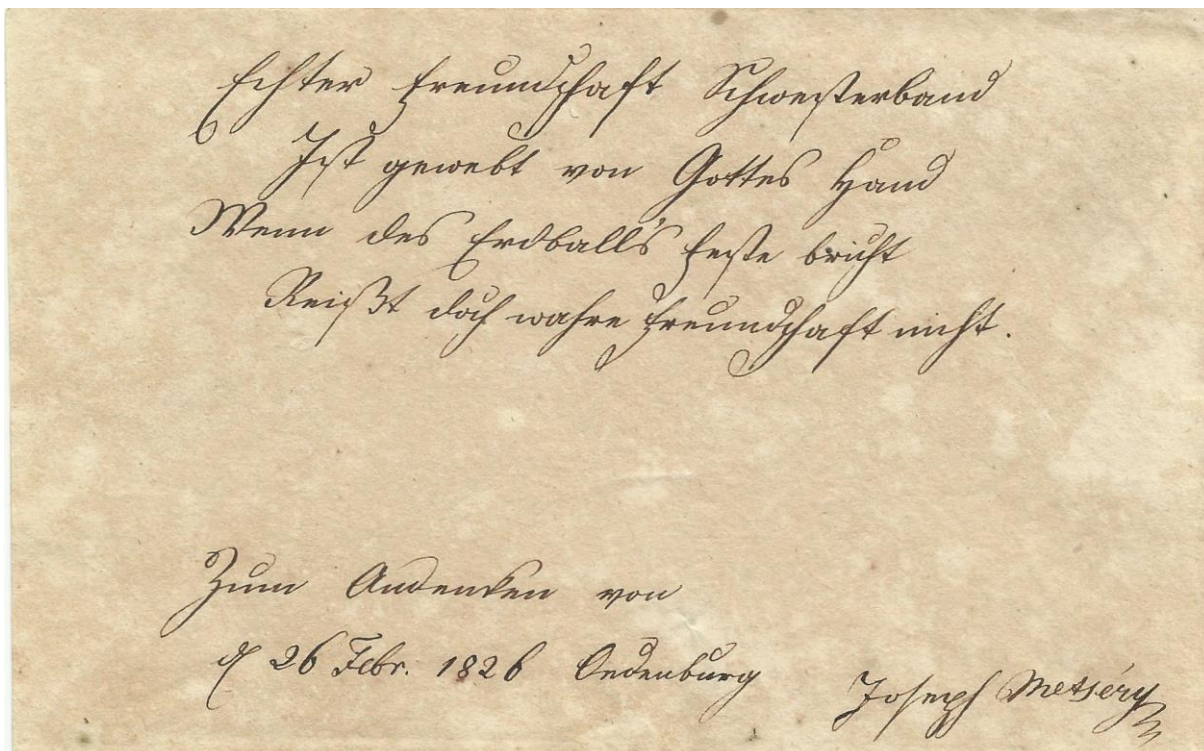 Echter Freundschaft Schwesterband
Ist gewebt von Gottes Hand
Wenn des Erdball's Feste bricht
Reißt doch wahre Freundschaft nicht.
Zum Andenken von
d 26 Febr. 1826 Oedenburg
Joseph Metséry